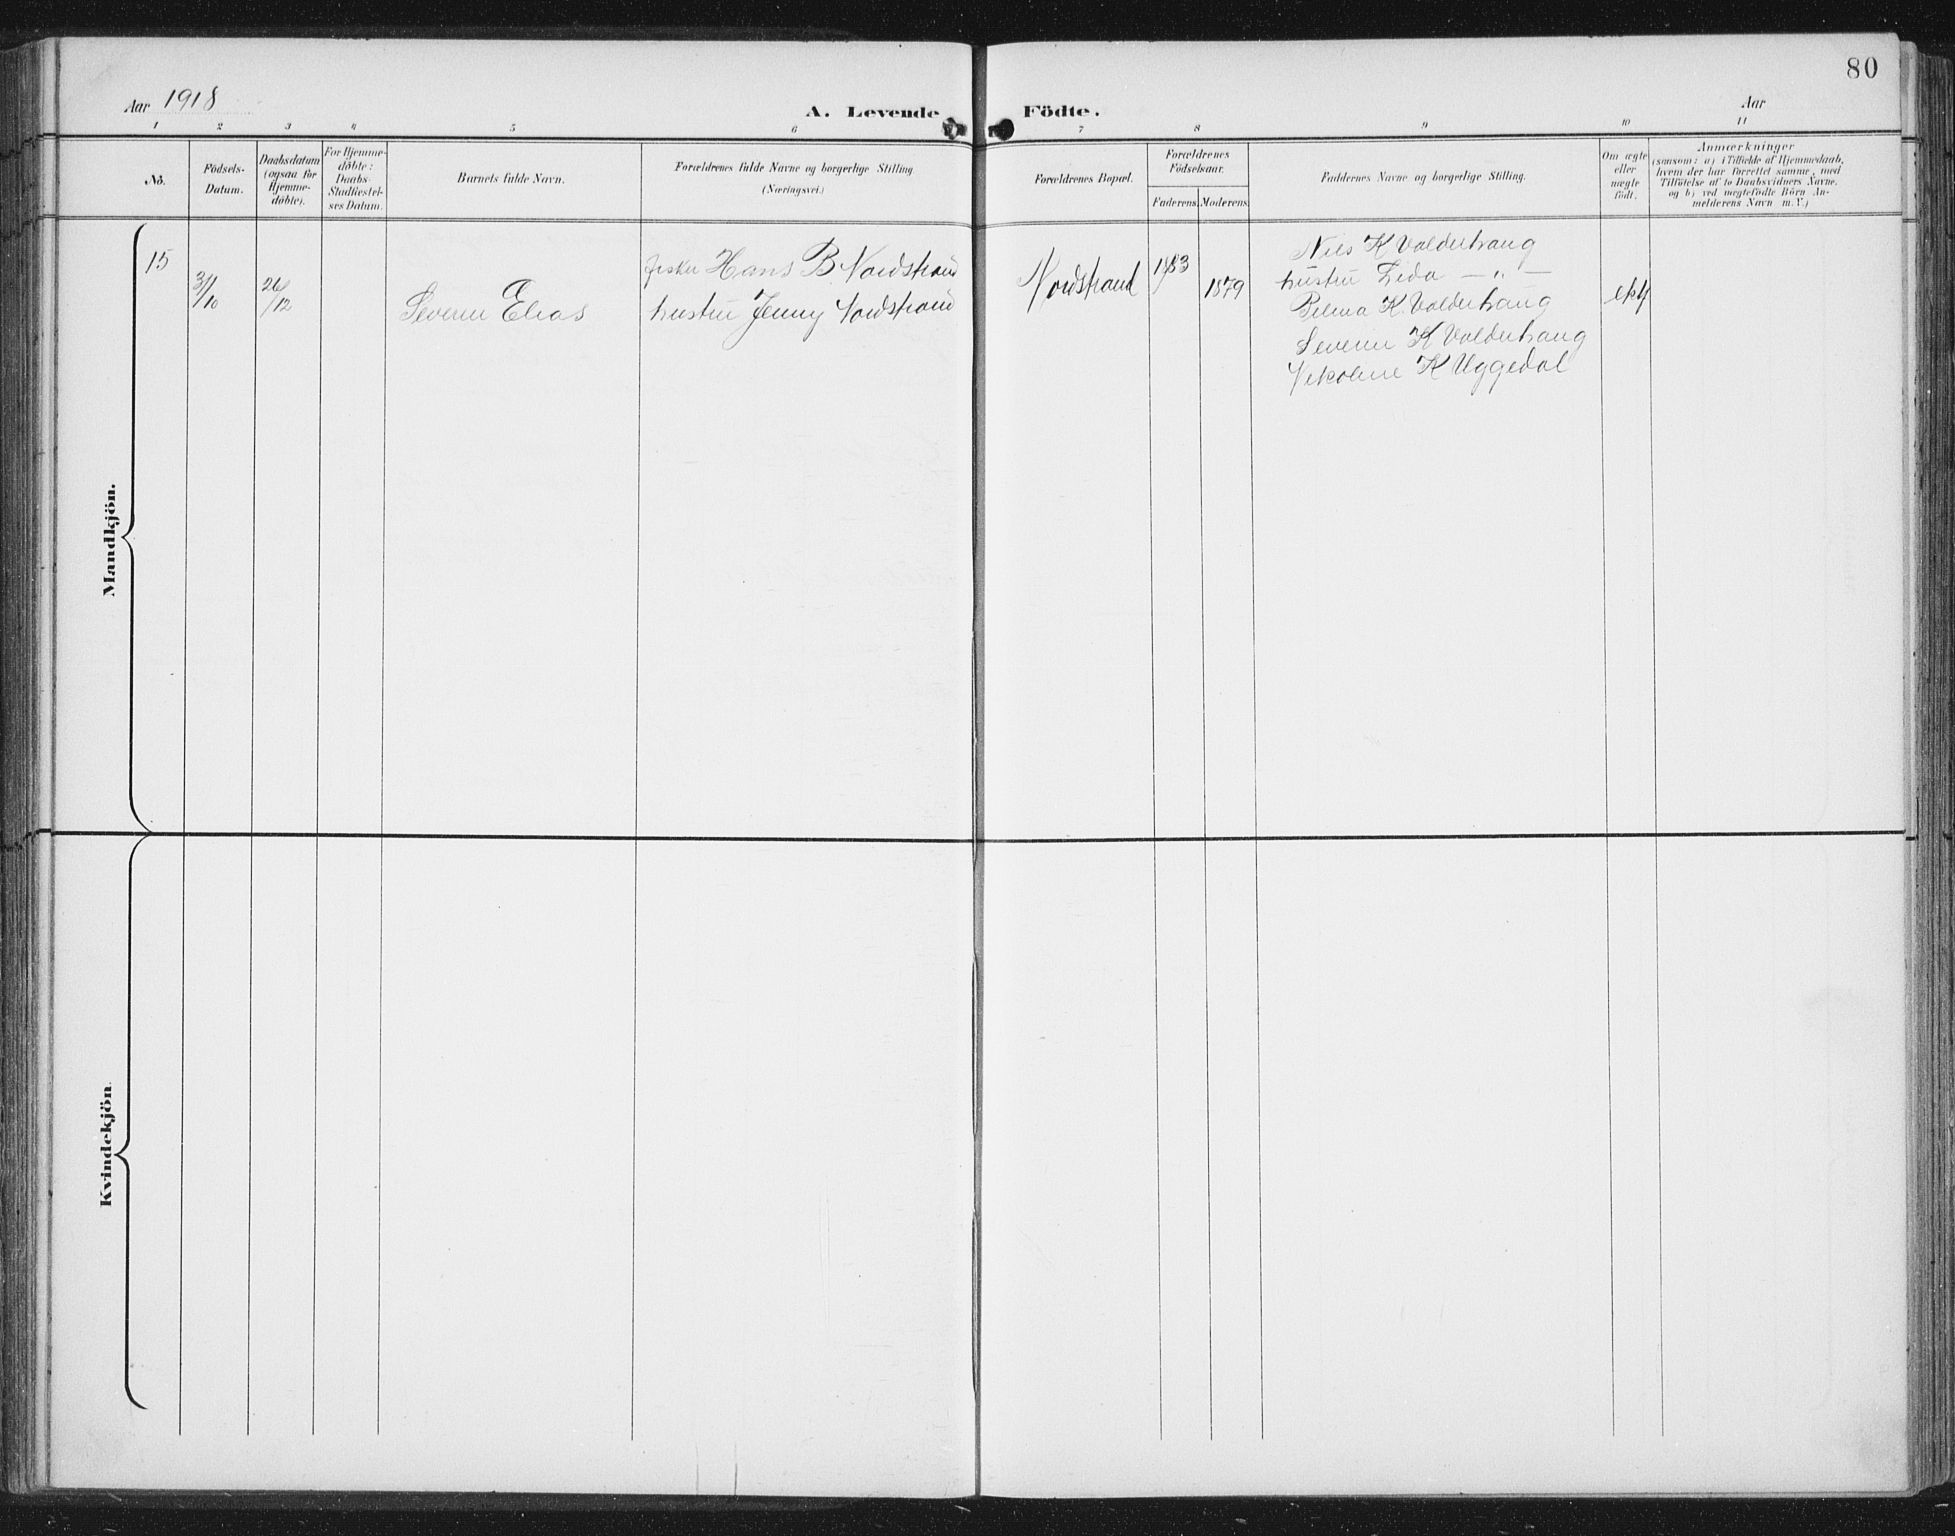 80
Aar 1918
A. Levende Födte.
Aar
1 2 3 4 5 6 7 8 9 10 11
No.
Födsels-
Datum.
Daabsdatum
(ogsaa for
Hjemme-
døbte).
For Hjemme-
døbte:
Daabs-
Stadfæstel-
ses Datum.
Barnets fulde Navn.
Forældrenes fulde Navne og borgerlige Stilling
(Næringsvei.)
Forældrenes Bopæl.
Forældrenes
Födselsaar.
Faderens.
Moderens.
Faddernes Navne og borgerlige Stilling.
Om ægte
eller
uægte
födt.
Anmærkninger
(saasom: a) i Tilfælde af Hjemmedaab,
hvem der har forrettet samme, med
Tilføielse af to Daabsvidners Navne.
og b) ved uægtefødte Börn An-
melderens Navn m. V.)
Mandkjön.
15
31/10
26/12
Severin Elias
fisker Hans B Nordstrand
hustru Jenny Nordstrand
Nordstrand
1883
1879
Nils K Valderhaug
hustru Lida — „ —
Pelma K. Valderhaug
Severin K Valderhaug
Nikoline K Uggedal
ekt
Kvindekjön.